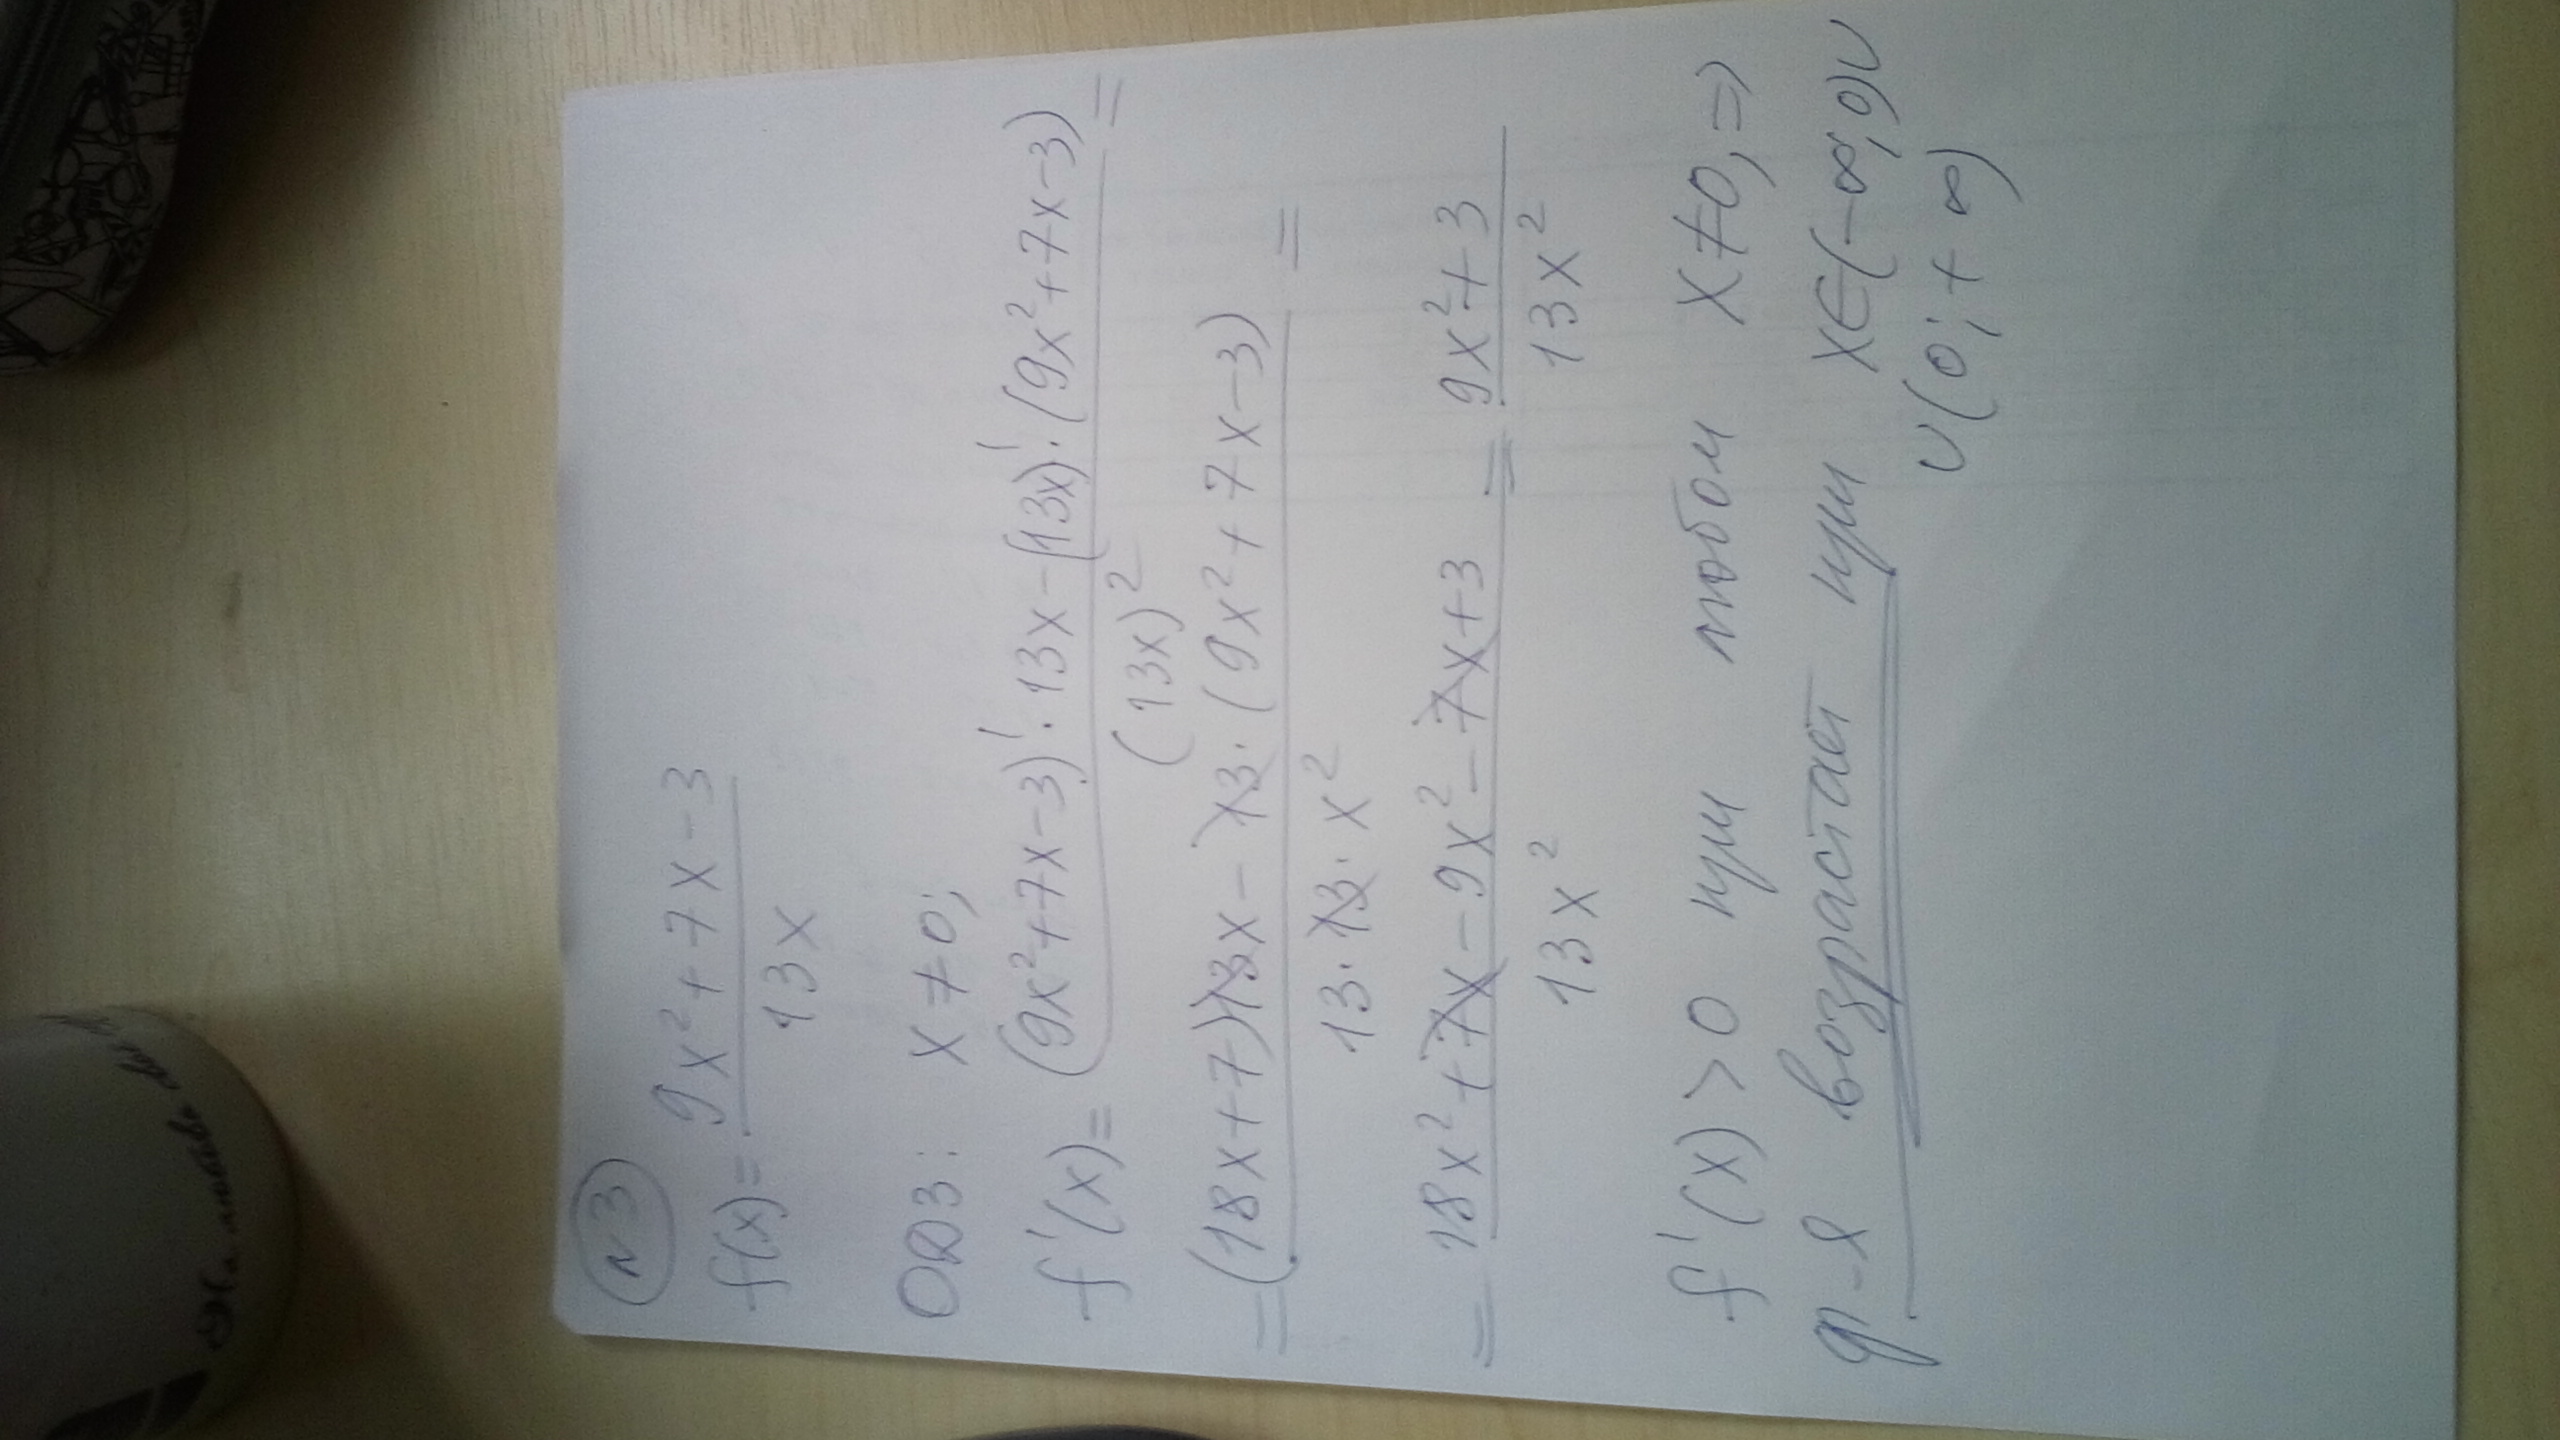 N3
f(x) = 9x² + 7x - 3 / 13x
ОДЗ: x ≠ 0;
f'(x) = (9x² + 7x - 3)' · 13x - (13x)' · (9x² + 7x - 3) / (13x)² =
= (18x + 7) 13x - 13 · (9x² + 7x - 3) / 13 · 13 · x² =
= 18x² + 7x - 9x² - 7x + 3 / 13x² = 9x² + 3 / 13x²
f'(x) > 0 при любом x ≠ 0, ⇒
ф-я возрастает при x ∈ (-∞; 0) ∪
∪ (0; +∞)